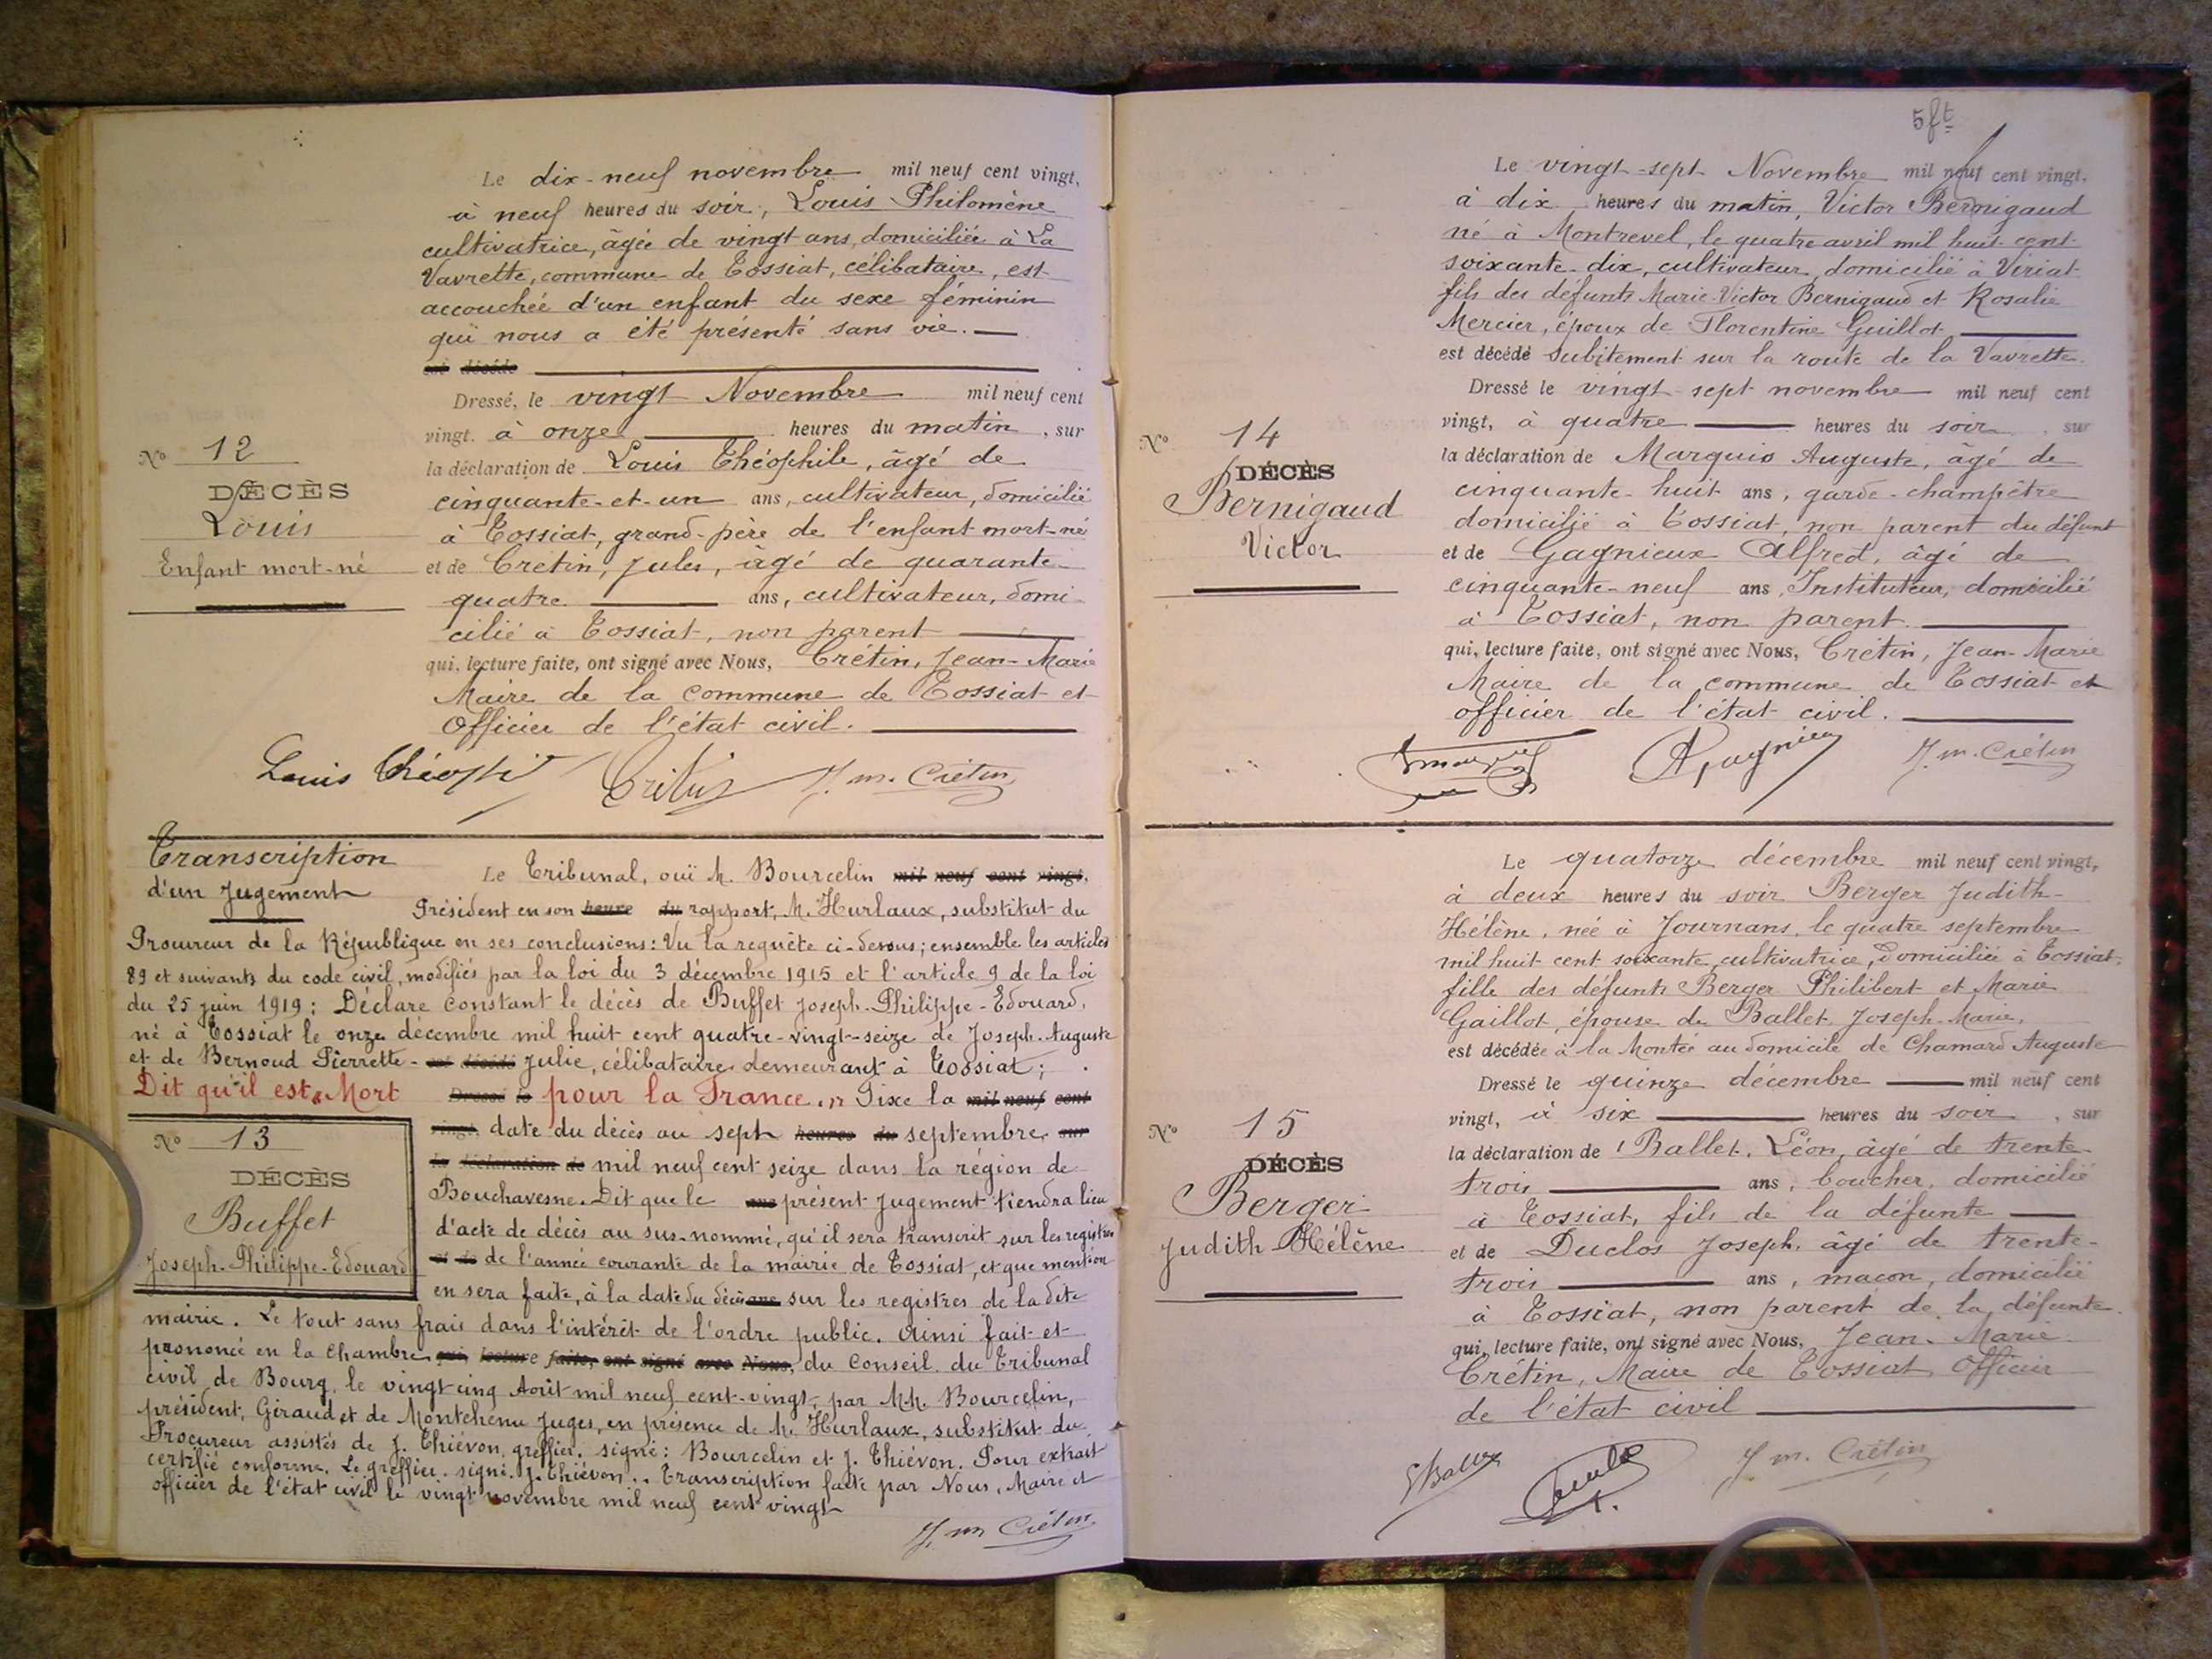 Le dix-neuf novembre mil neuf cent vingt,
à neuf heures du soir, Louis Philomène
cultivatrice, âgée de vingt ans, domiciliée à La
Vavrette, commune de Tossiat, célibataire, est
accouchée d'un enfant du sexe féminin
qui nous a été présenté sans vie.
est décédé
Dressé, le vingt Novembre mil neuf cent
vingt. à onze heures du matin, sur
la déclaration de Louis Théophile, âgé de
cinquante-et-un ans, cultivateur, domicilié
à Tossiat, grand-père de l'enfant mort-né
et de Crétin, Jules, âgé de quarante-
quatre ans, cultivateur, domi-
cilié à Tossiat, non parent
qui, lecture faite, ont signé avec Nous, Crétin, Jean-Marie
Maire de la commune de Tossiat et
Officier de l'état civil.
No 12
DÉCÈS
Louis
Enfant mort-né
Louis Théophi Crétin J. m. Crétin
Transcription
d'un Jugement
Le Tribunal, ouï M. Bourcelin mil neuf cent vingt,
Président en son heure du rapport, M. Hurlaux, substitut du
Procureur de la République en ses conclusions: Vu la requête ci-dessus; ensemble les articles
89 et suivants du code civil, modifiés par la loi du 3 décembre 1915 et l'article 9 de la loi
du 25 juin 1919: Déclare constant le décès de Buffet Joseph-Philippe-Edouard,
né à Tossiat le onze décembre mil huit cent quatre-vingt-seize de Joseph-Auguste
et de Bernoud Pierrette- est décédé Julie, célibataire demeurant à Tossiat;
Dit qu'il est "Mort Dressé le pour la France." Fixe la mil neuf cent
vingt, date du décès au sept heures du septembre sur
la déclaration de mil neuf cent seize dans la région de
Bouchavesne. Dit que le ans présent Jugement tiendra lieu
d'acte de décès au sus-nommé, qu'il sera transcrit sur les registres
et de de l'année courante de la mairie de Tossiat, et que mention
en sera faite, à la date du décès ans sur les registres de la dite
mairie. Le tout sans frais dans l'intérêt de l'ordre public. Ainsi fait et
prononcé en la Chambre qui, lecture faite, ont signé avec Nous, du Conseil du Tribunal
civil de Bourg, le vingt cinq Août mil neuf cent-vingt, par MM. Bourcelin,
président, Giraud et de Montchenu Juges, en présence de M. Hurlaux, substitut du
Procureur assistés de J. Thiévon, greffier. signé: Bourcelin et J. Thiévon. Pour extrait
certifié conforme. Le greffier. signé. J. Thiévon.. Transcription faite par Nous, Maire et
officier de l'état civil le vingt novembre mil neuf cent vingt
No 13
DÉCÈS
Buffet
Joseph-Philippe-Edouard
J. m Crétin
5 ft
Le vingt-sept Novembre mil neuf cent vingt.
à dix heures du matin, Victor Bernigaud
né à Montrevel, le quatre avril mil huit-cent-
soixante-dix, cultivateur, domicilié à Viriat
fils des défunts Marie-Victor Bernigaud et Rosalie
Mercier, époux de Florentine Guillot
est décédé subitement sur la route de la Vavrette.
Dressé le vingt-sept novembre mil neuf cent
vingt, à quatre heures du soir, sur
la déclaration de Marquis Auguste, âgé de
cinquante-huit ans, garde-champêtre
domicilié à Tossiat, non parent du défunt
et de Gagnieux Alfred, âgé de
cinquante-neuf ans, Instituteur, domicilié
à Tossiat, non parent.
qui, lecture faite, ont signé avec Nous, Crétin, Jean-Marie
Maire de la commune de Tossiat et
officier de l'état civil.
No 14
DÉCÈS
Bernigaud
Victor
J. m. Crétin
Le quatorze décembre mil neuf cent vingt,
à deux heures du soir Berger Judith-
Hélène, née à Journans, le quatre septembre
mil huit cent soixante, cultivatrice, domiciliée à Tossiat,
fille des défunts Berger Philibert et Marie
Gaillot, épouse de Ballet, Joseph-Marie,
est décédée à la Montée au domicile de Chamard Auguste
Dressé le quinze décembre mil neuf cent
vingt, à six heures du soir, sur
la déclaration de Ballet, Léon, âgé de trente
trois ans, boucher, domicilié
à Tossiat, fils de la défunte
et de Duclos Joseph, âgé de trente-
trois ans, maçon, domicilié
à Tossiat, non parent de la défunte.
qui, lecture faite, ont signé avec Nous, Jean-Marie
Crétin, Maire de Tossiat Officier
de l'état civil
No 15
DÉCÈS
Berger
Judith Hélène
J m. Crétin